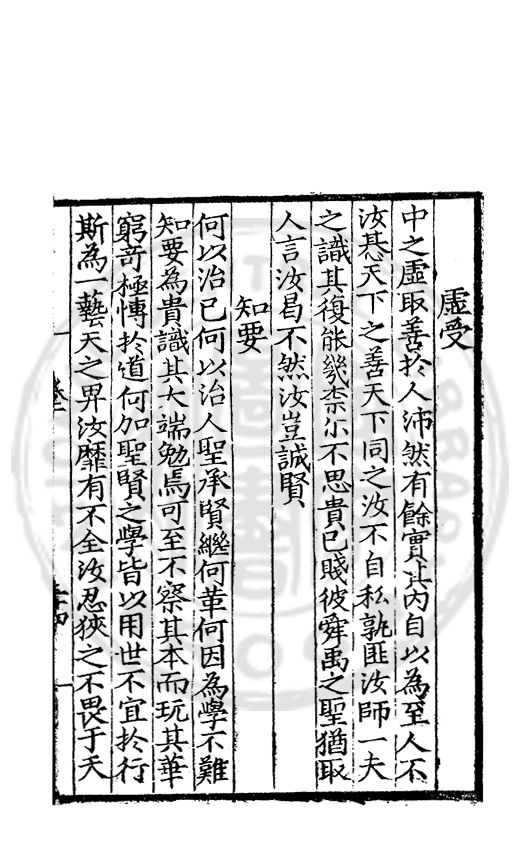 虛受
中之虛取善於人沛然有餘實其內自以為至人不
汝惎天下之善天下同之汝不自私孰匪汝師一夫
之識其復能幾柰尓不思貴已賤彼舜禹之聖猶取
人言汝曷不然汝豈誠賢
知要
何以治已何以治人聖承賢繼何革何因為學不難
知要為貴識其大端勉焉可至不察其本而玩其華
窮竒極慱於道何加聖賢之學皆以用世不宜於行
斯為一藝天之畀汝靡有不全汝忍狹之不畏于天
卷一
二十四